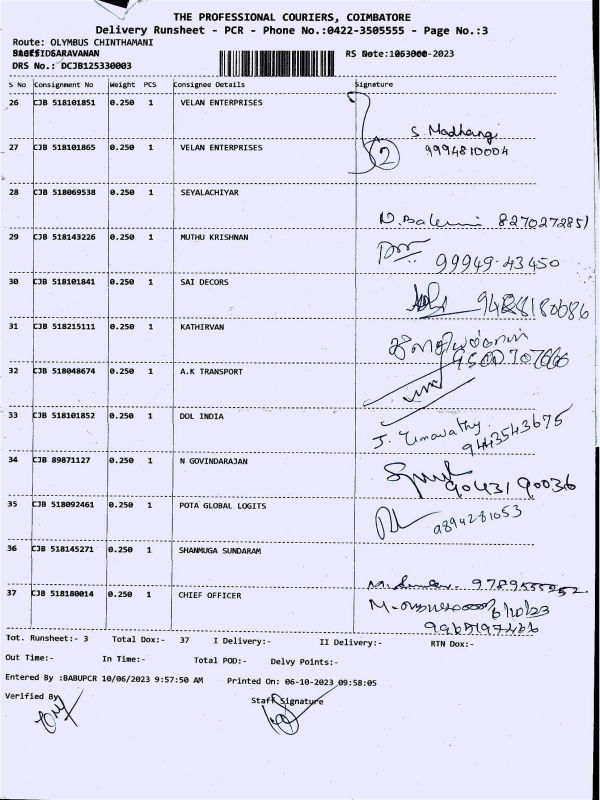 THE PROFESSIONAL COURIERS, COIMBATORE
Delivery Runsheet - PCR - Phone No.:0422-3505555 - Page No.:3
Route: OLYMBUS CHINTHAMANI
RS Date: -2023
DRS No.: DCJB125330003
S No Consignment No Weight PCS Consignee Details Signature
26 CJB 518101851 0.250 1 VELAN ENTERPRISES
S. Madhang
27 CJB 518101865 0.250 1 VELAN ENTERPRISES 2 9994810004
28 CJB 518069538 0.250 1 SEYALACHIYAR
8270272851
29 CJB 518143226 0.250 1 MUTHU KRISHNAN
99949-43450
30 CJB 518101841 0.250 1 SAI DECORS
31 CJB 518215111 0.250 1 KATHIRVAN
32 CJB 518048674 0.250 1 A.K TRANSPORT
33 CJB 518101852 0.250 1 DOL INDIA
J. Umavathy
9443543675
34 CJB 89871127 0.250 1 N GOVINDARAJAN
9043190036
35 CJB 518092461 0.250 1 POTA GLOBAL LOGITS
9894281053
36 CJB 518145271 0.250 1 SHANMUGA SUNDARAM
37 CJB 518180014 0.250 1 CHIEF OFFICER
Tot. Runsheet:- 3 Total Dox:- 37 I Delivery:- II Delivery:- RTN Dox:-
Out Time:- In Time:- Total POD:- Delvy Points:-
Entered By :BABUPCR 10/06/2023 9:57:50 AM Printed On: 06-10-2023 09:58:05
Verified By Staff Signature